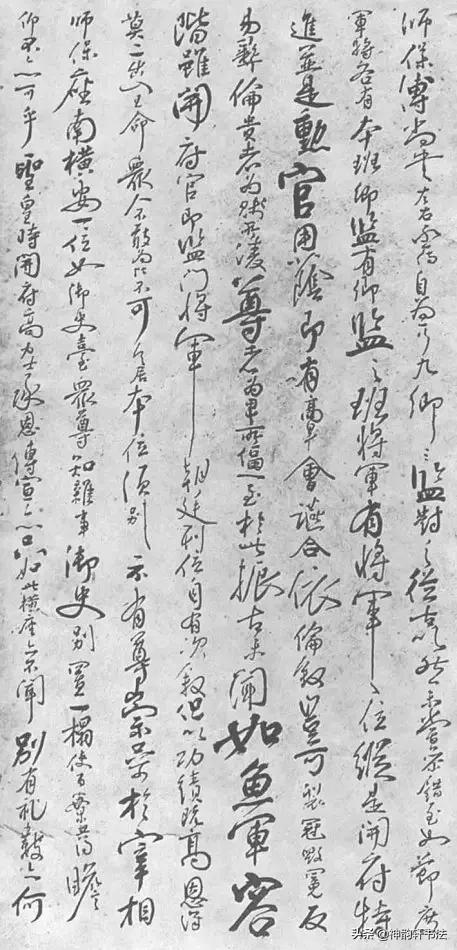 师保傅尚書左右僕射自為一行九卿三監對之從古以然未嘗參錯至如節度
軍將各有本班卿監有卿監之班將軍有將軍之位縱是開府特
進並是勳官用蔭即有高卑會讌合依倫叙豈可裂冠毀冕反
易彝倫貴者為賤所凌尊者為卑所偪一至於此振古未聞如魚軍容
階雖開府官即監門將軍朝廷列位自有次叙但以功績既高恩澤
莫二出入王命眾人不敢為比不可令居本位須別示有尊崇於宰相
師保座南橫安一位如御史臺眾尊知雜事御史別置一榻使百寮共得瞻
仰不亦可乎聖皇時開府高力士承恩傳宣亦只如此橫座亦不聞別有礼數亦何
头条 @神韵轩书法